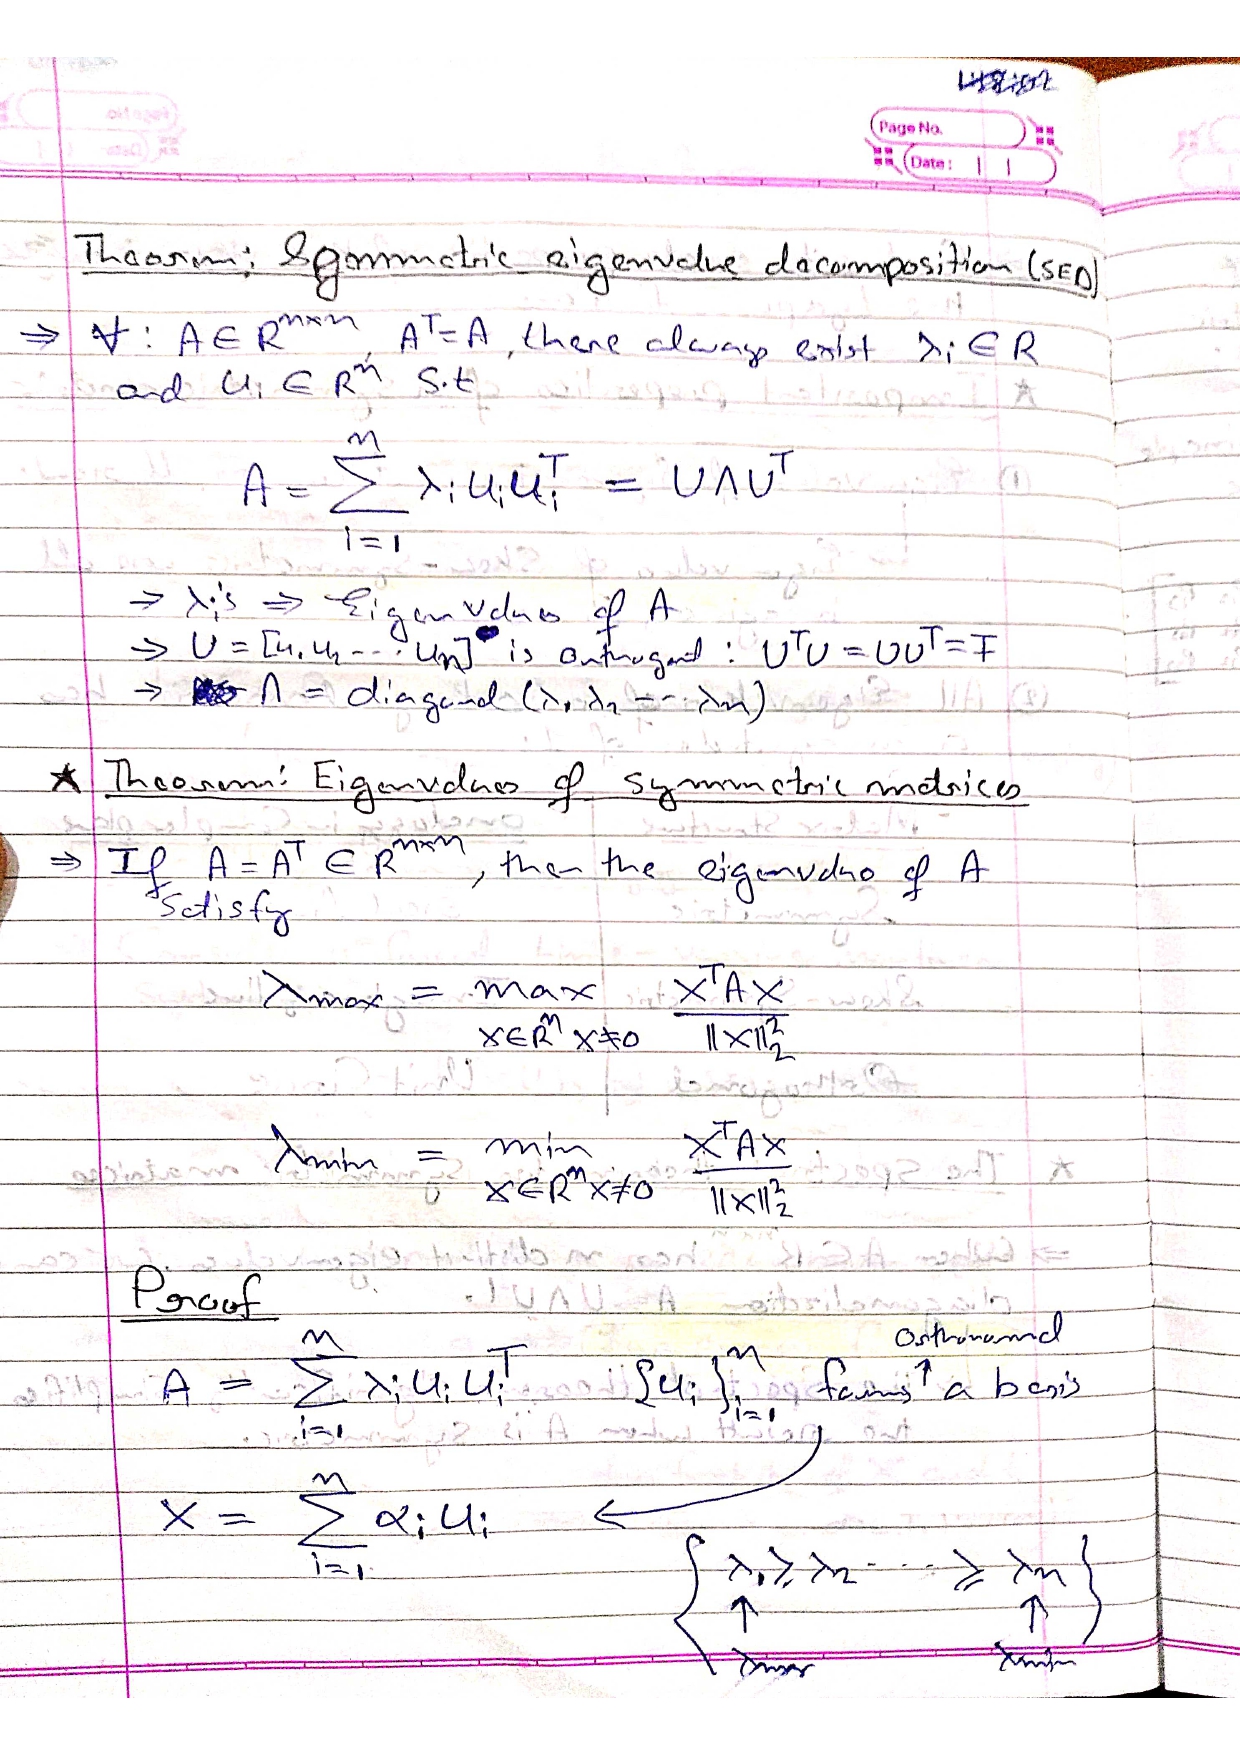 Page No.
Date:
Theorem: Symmetric eigenvalue decomposition (SED)
⇒ ∀ : A ∈ R^{n×n}, A^T = A, there always exist λ_i ∈ R
and u_i ∈ R^n s.t
A = Σ_{i=1}^{n} λ_i u_i u_i^T = U Λ U^T
→ λ_i's ⇒ Eigenvalues of A
→ U = [u_1 u_2 --- u_n] is orthogonal : U^T U = U U^T = I
→ Λ = diagonal (λ_1 λ_2 --- λ_n)
★ Theorem: Eigenvalues of symmetric matrices
⇒ If A = A^T ∈ R^{n×n}, then the eigenvalue of A
satisfy
λ_max = max_{x∈R^n x≠0} x^T A x / ||x||_2^2
λ_min = min_{x∈R^n x≠0} x^T A x / ||x||_2^2
Proof
Orthonormal
A = Σ_{i=1}^{n} λ_i u_i u_i^T {u_i}_{i=1}^{n} forms ↑ a basis
X = Σ_{i=1}^{n} α_i u_i ←
{ λ_1 ≥ λ_2 ---- ≥ λ_n }
↑ ↑
λ_max λ_min